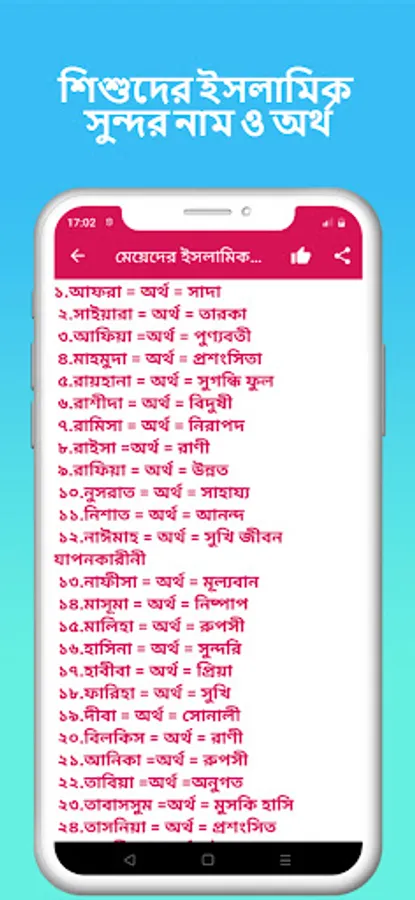 শিশুদের ইসলামিক
সুন্দর নাম ও অর্থ
17:02
মেয়েদের ইসলামিক...
১.আফরা = অর্থ = সাদা
২.সাইয়ারা = অর্থ = তারকা
৩.আফিয়া =অর্থ = পুণ্যবতী
৪.মাহমুদা = অর্থ = প্রশংসিতা
৫.রায়হানা = অর্থ = সুগন্ধি ফুল
৬.রাশীদা = অর্থ = বিদুষী
৭.রামিসা = অর্থ = নিরাপদ
৮.রাইসা =অর্থ = রাণী
৯.রাফিয়া = অর্থ = উন্নত
১০.নুসরাত = অর্থ = সাহায্য
১১.নিশাত = অর্থ = আনন্দ
১২.নাঈমাহ = অর্থ = সুখি জীবন
যাপনকারীনী
১৩.নাফীসা = অর্থ = মূল্যবান
১৪.মাসূমা = অর্থ = নিষ্পাপ
১৫.মালিহা = অর্থ = রুপসী
১৬.হাসিনা = অর্থ = সুন্দরি
১৭.হাবীবা = অর্থ = প্রিয়া
১৮.ফারিহা = অর্থ = সুখি
১৯.দীবা = অর্থ = সোনালী
২০.বিলকিস = অর্থ = রাণী
২১.আনিকা =অর্থ = রুপসী
২২.তাবিয়া =অর্থ =অনুগত
২৩.তাবাসসুম =অর্থ = মুসকি হাসি
২৪.তাসনিয়া = অর্থ = প্রশংসিত